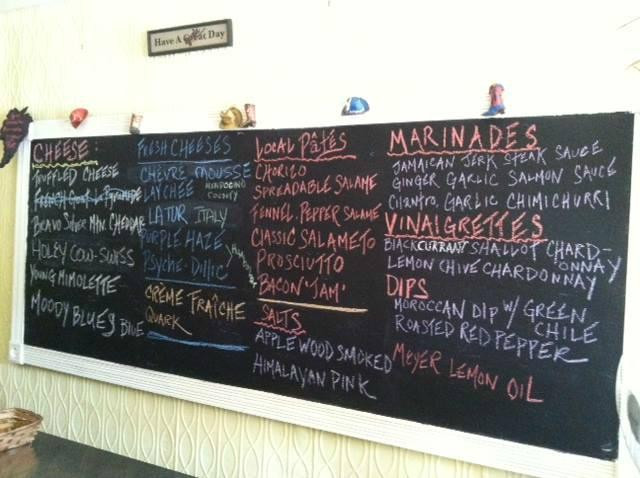 Have A Great Day
CHEESE:
TRUFFLED CHEESE
BRAVO Silver MTN. CHEDDAR
HOLEY COW-SWISS
YOUNG MIMOLETTE
MOODY BLUES BLUE
FRESH CHEESES
CHEVRE MOUSSE
LAYCHEE MENDOCINO COUNTY
LATUR ITALY
PURPLE HAZE
PSYCHE-DILLIC
CRÈME FRAÎCHE
QUARK
LOCAL PÂTÉS
CHORIZO
SPREADABLE SALAME
FENNEL PEPPER SALAME
CLASSIC SALAMETO
PROSCIUTTO
BACON 'JAM'
SALTS
APPLE WOOD SMOKED
HIMALAYAN PINK
MARINADES
JAMAICAN JERK STEAK SAUCE
GINGER GARLIC SALMON SAUCE
Cilantro GARLIC CHIMICHURRI
VINAIGRETTES
BLACKCURRANT SHALLOT CHARD-
ONNAY
LEMON CHIVE CHARDONNAY
DIPS
MOROCCAN DIP W/ GREEN
CHILE
ROASTED RED PEPPER
MEYER LEMON OIL